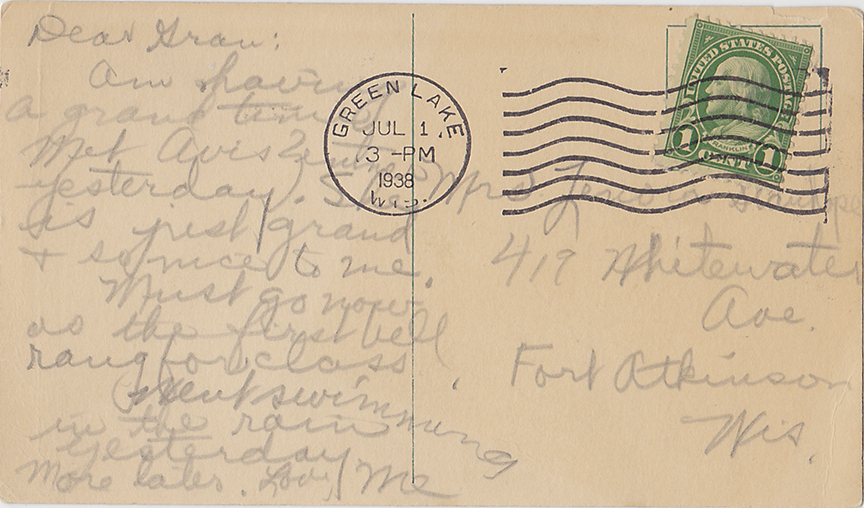 Dear Gran:
Am having
a grand time.
Met Avis
yesterday. She
is just grand
+ so nice to me.
Must go now
as the first bell
rang for class
Went swimming
in the rain
yesterday
More later. Love, Me
GREEN LAKE
JUL 1
3 -PM
1938
WIS.
UNITED STATES POSTAGE
FRANKLIN
1 CENT 1
Mrs Lenora
419 Whitewater
Ave.
Fort Atkinson
Wis.